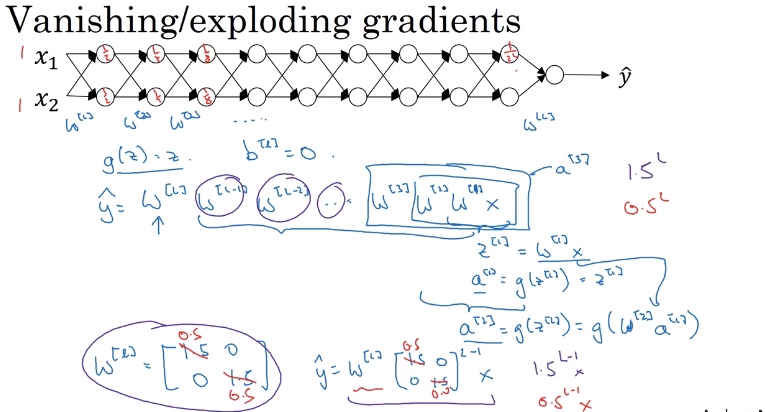 Vanishing/exploding gradients
1 x₁ 1/2 1/4 1/8 1/2ᴸ ŷ
1 x₂ 1/2 1/4 1/8
w^[1] w^[2] w^[3] ..... w^[L]
g(z) = z. b^[l] = 0. a^[3] 1.5^L
ŷ = w^[L] w^[L-1] w^[L-2] ... w^[3] w^[2] w^[1] x 0.5^L
z^[1] = w^[1] x
a^[1] = g(z^[1]) = z^[1]
a^[2] = g(z^[2]) = g(w^[2] a^[1])
w^[l] = [1.5 0 0 1.5] 0.5 0.5
ŷ = w^[L] [1.5 0 0 1.5]^L-1 x 0.5 0.5 1.5^L-1 x
0.5^L-1 x